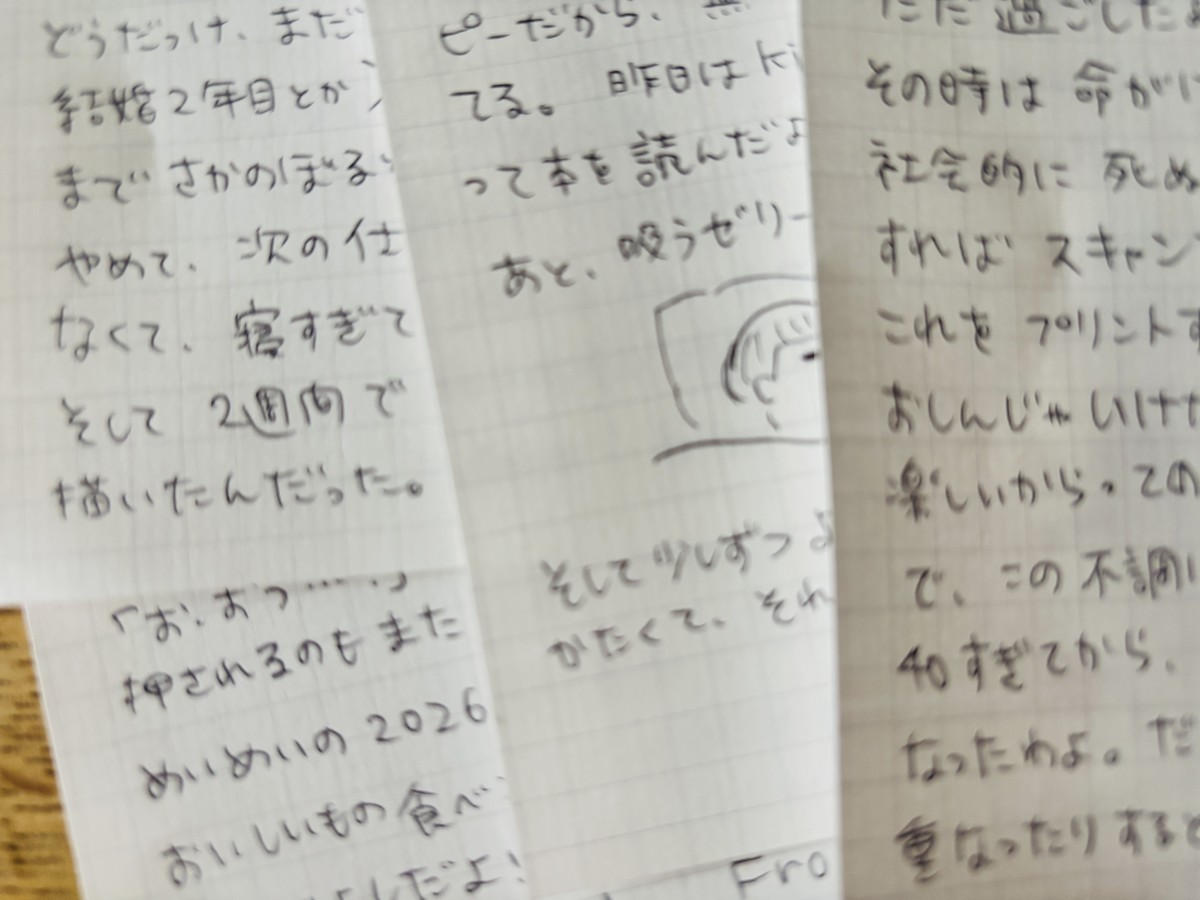 どうだっけ、まだ
結婚2年目とか
までさかのぼる
やめて、次の仕
なくて、寝すぎて
そして2週間で
描いたんだった。
「お、おっ……」
押されるのもまた
めいめいの2026
おいしいもの食べ
しだよ!
ピーだから、無
てる。昨日はKi
って本を読んだよ
あと、吸うゼリー
そして少しずつよ
がたくて、それ
Fro
ただ過ごしため
その時は命がけ
社会的に死ぬ
すればスキャン
これをプリントす
おしんじゃいけ
楽しいから。ての
で、この不調
40すぎてから、
なったわよ。だ
重なったりすると